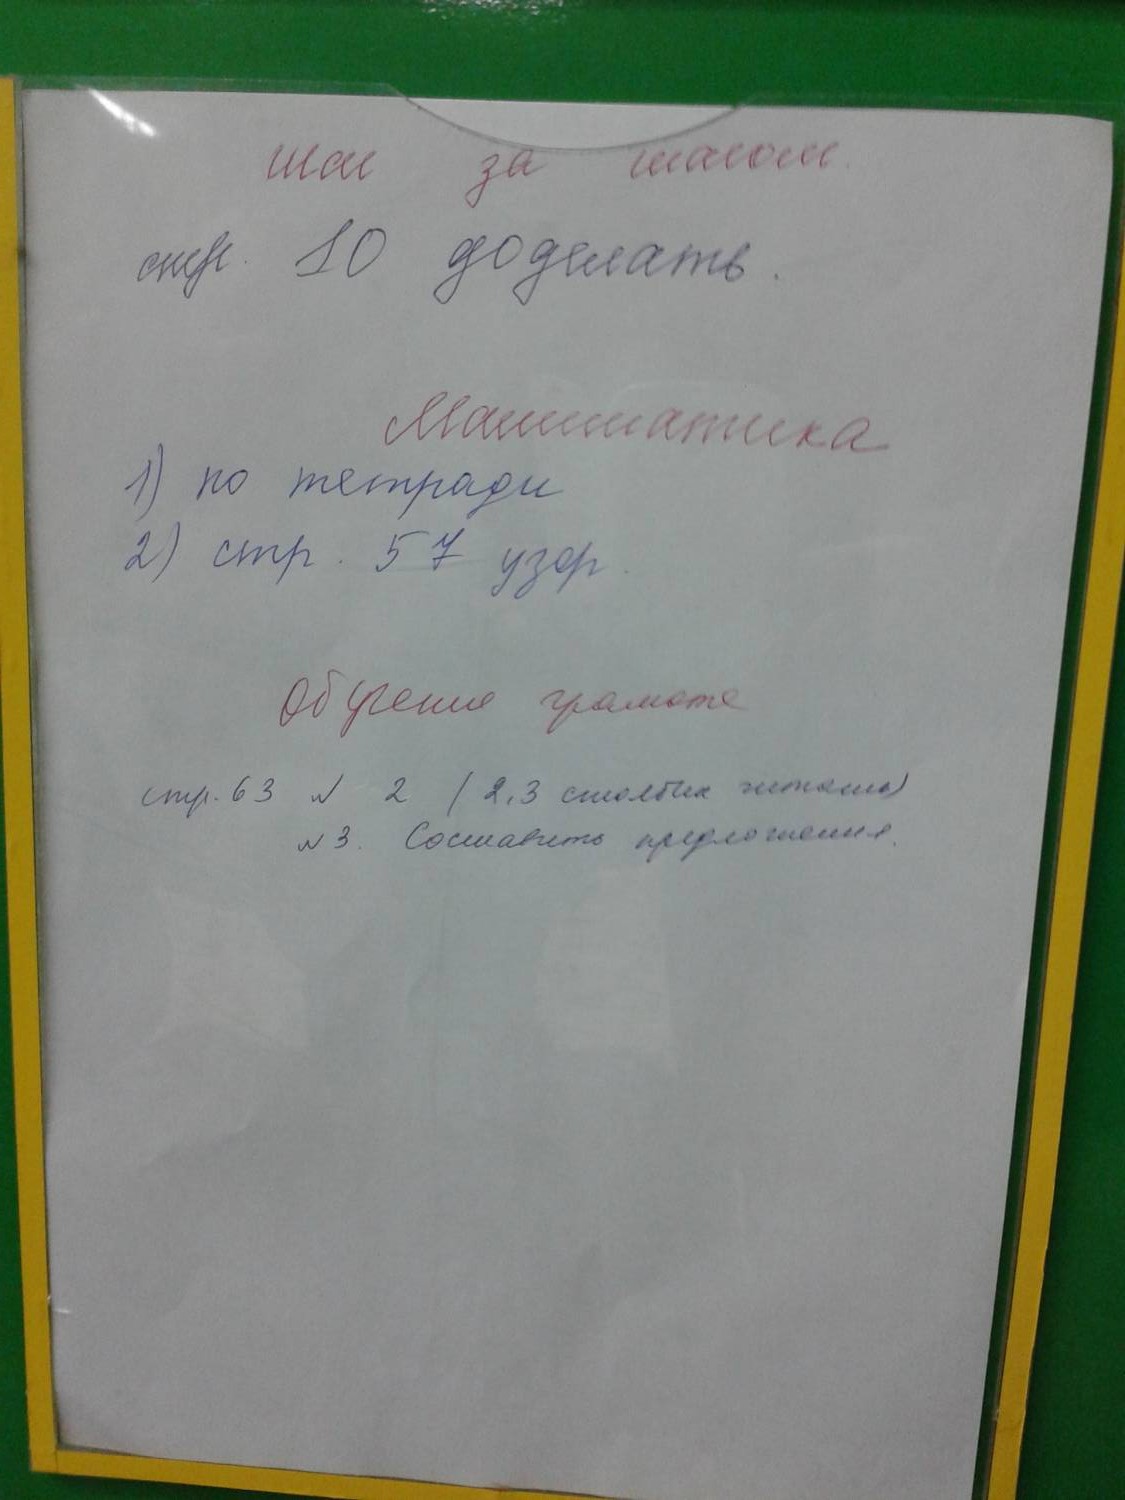 Шаг за шагом.
стр. 10 доделать.
Математика
1) по тетради
2) стр. 57 узор.
Обучение грамоте
стр. 63 № 2 (2,3 столбик читать)
№ 3. Составить предложения.